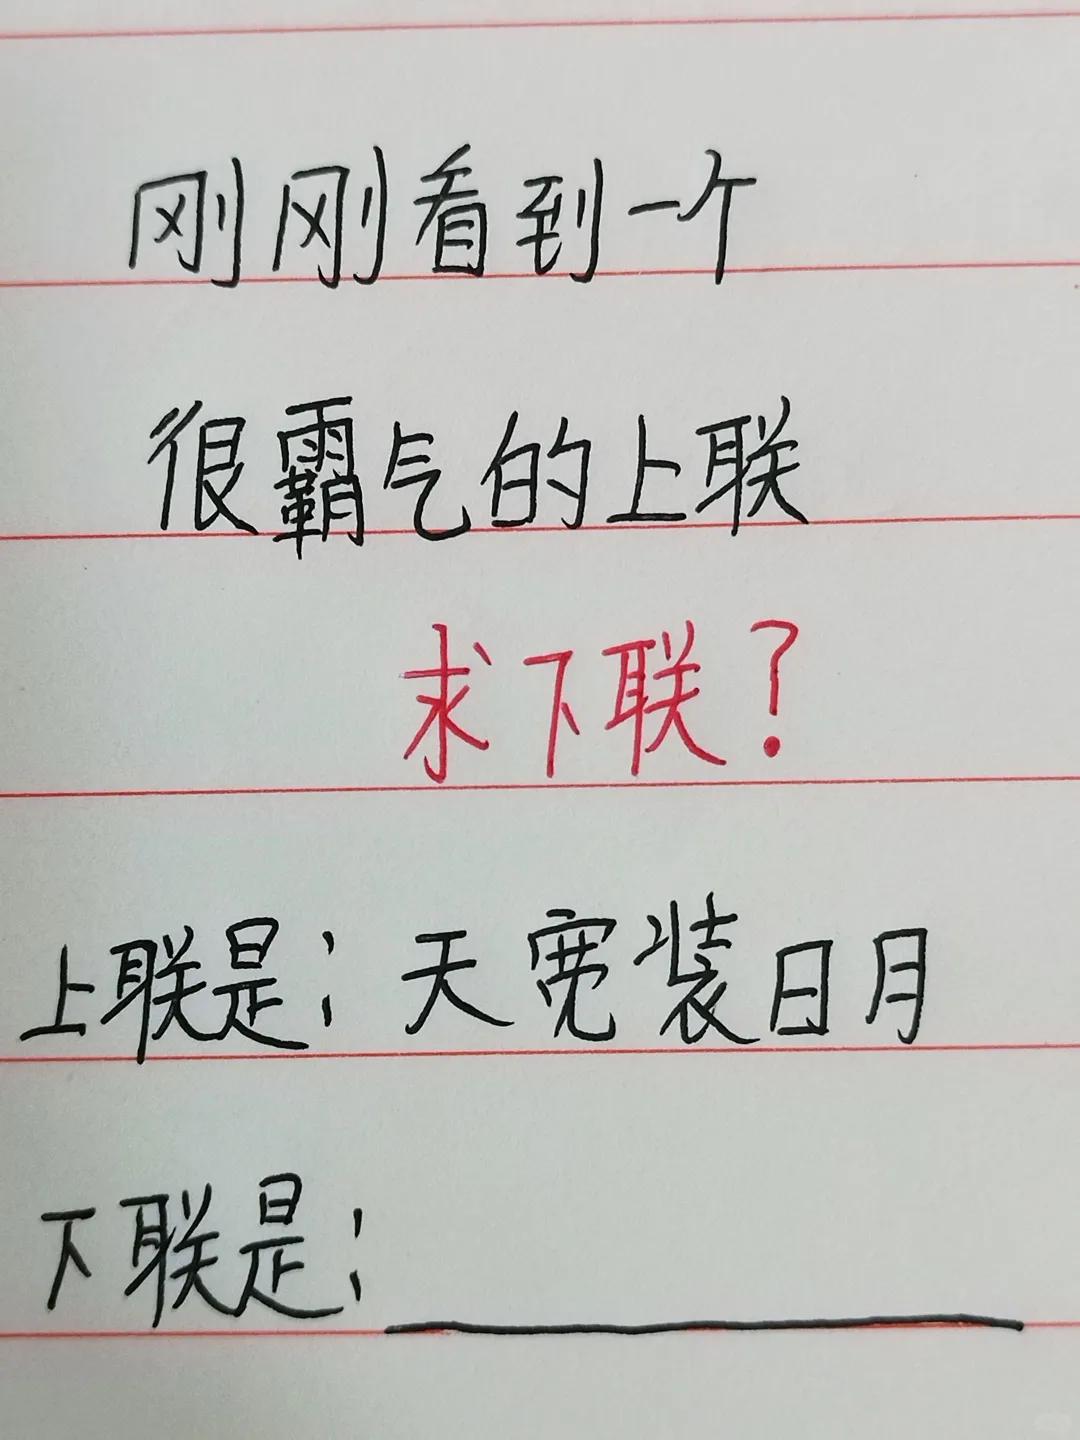 刚刚看到一个
很霸气的上联
求下联？
上联是：天宽装日月
下联是：